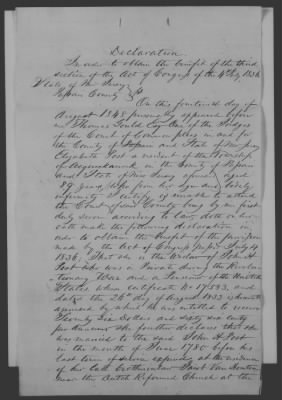 Declaration
In order to obtain the benefit of the third
section of the Act of Congress of the 4th July 1836
State of New Jersey
County
On this fourteenth day of
August 1848 personally appeared before
me Thomas Gould one of the Judges
of the Court of Common pleas in and for
the County of and State of New Jersey
Elizabeth Post a resident of the Township
of Acquackanonk in the County of
and State of New Jersey aged
89 years who from her age and bodily
infirmity is unable to attend
the Court of said County being by me first
duly sworn according to law, doth on her
oath make the following declaration in
order to obtain the benefit of the provision
made by the Act of Congress passed July 4
1836. That she is the Widow of John H
Post who was a in the Revolu-
tionary War and a Pensioner of the United
States whose certificate No 17583, and
dated the 26th day of August 1833
appeared by which he was entitled to receive
Dollars and sixty six cents
per annum. She further declares that she
was married to the said John H Post
in the month of June 1780 before his
last term of service expired at the residence
of her
near the Dutch Reformed Church at the